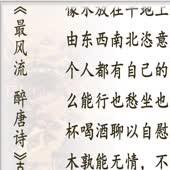 《最风流 醉唐诗》
像水放在平地上
由东西南北恣意
个人都有自己的
么能行也愁坐也
杯喝酒聊以自慰
木孰能无情，不